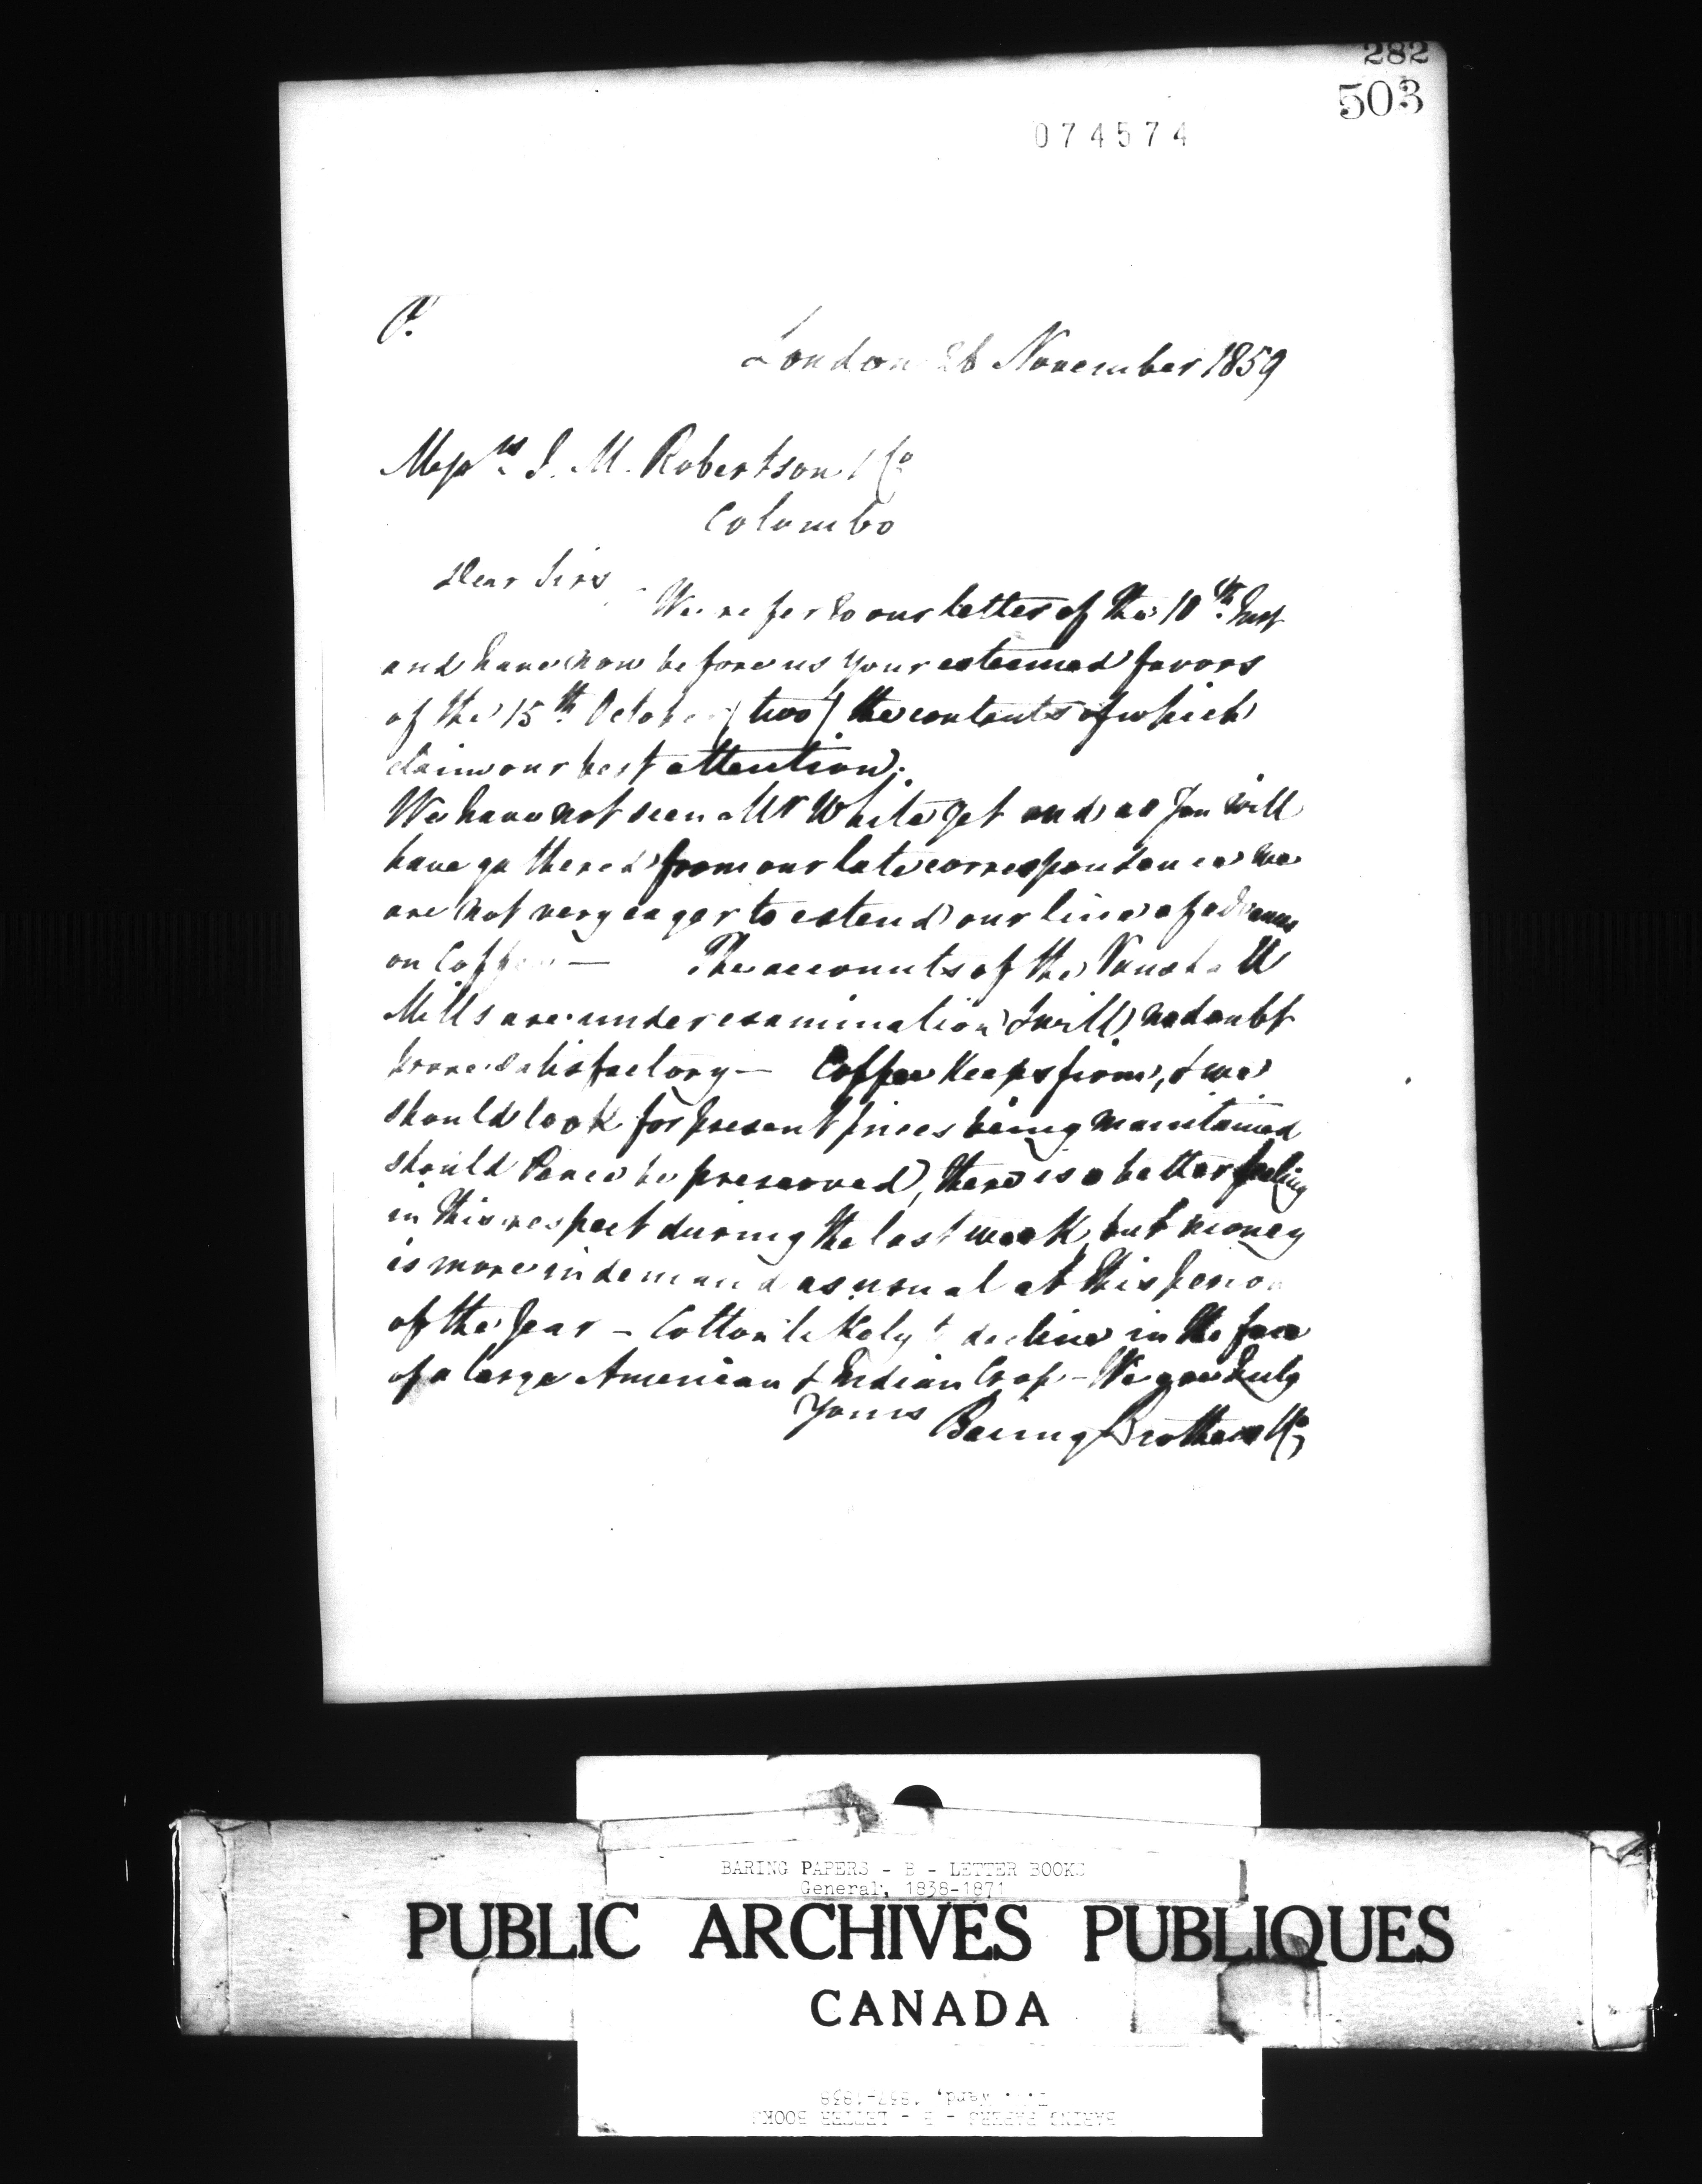 282
503
074574
London 26 November 1859
Mess<sup>rs</sup> J. M. Robertson & Co
Colombo
Dear Sirs
We refer to our letter of the 10th Inst
and have now before us your esteemed favors
of the 15th October (two) the contents of which
claim our best attention.
We have not seen Mr White yet and as you will
have gathered from our late correspondence we
are not very eager to extend our line of advances
on Coffee — The accounts of the
Mills are under examination & will no doubt
prove satisfactory — Coffee keeps firm, & we
should look for present prices being maintained
should Peace be preserved, there is a better feeling
in this respect during the last week, but money
is more in demand as usual at this period
of the Year — Cotton likely to decline in the face
of a large American & Indian Crop — We are truly
Yours Baring Brothers & Co
BARING PAPERS - B - LETTER BOOKS
General, 1838-1871
PUBLIC ARCHIVES PUBLIQUES
CANADA
Ward, 1837-1838
BARING PAPERS - B - LETTER BOOKS